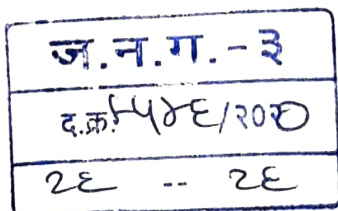 ज.न.ग.-३
द.क्र. ५४६/२०२०
२६ -- २६